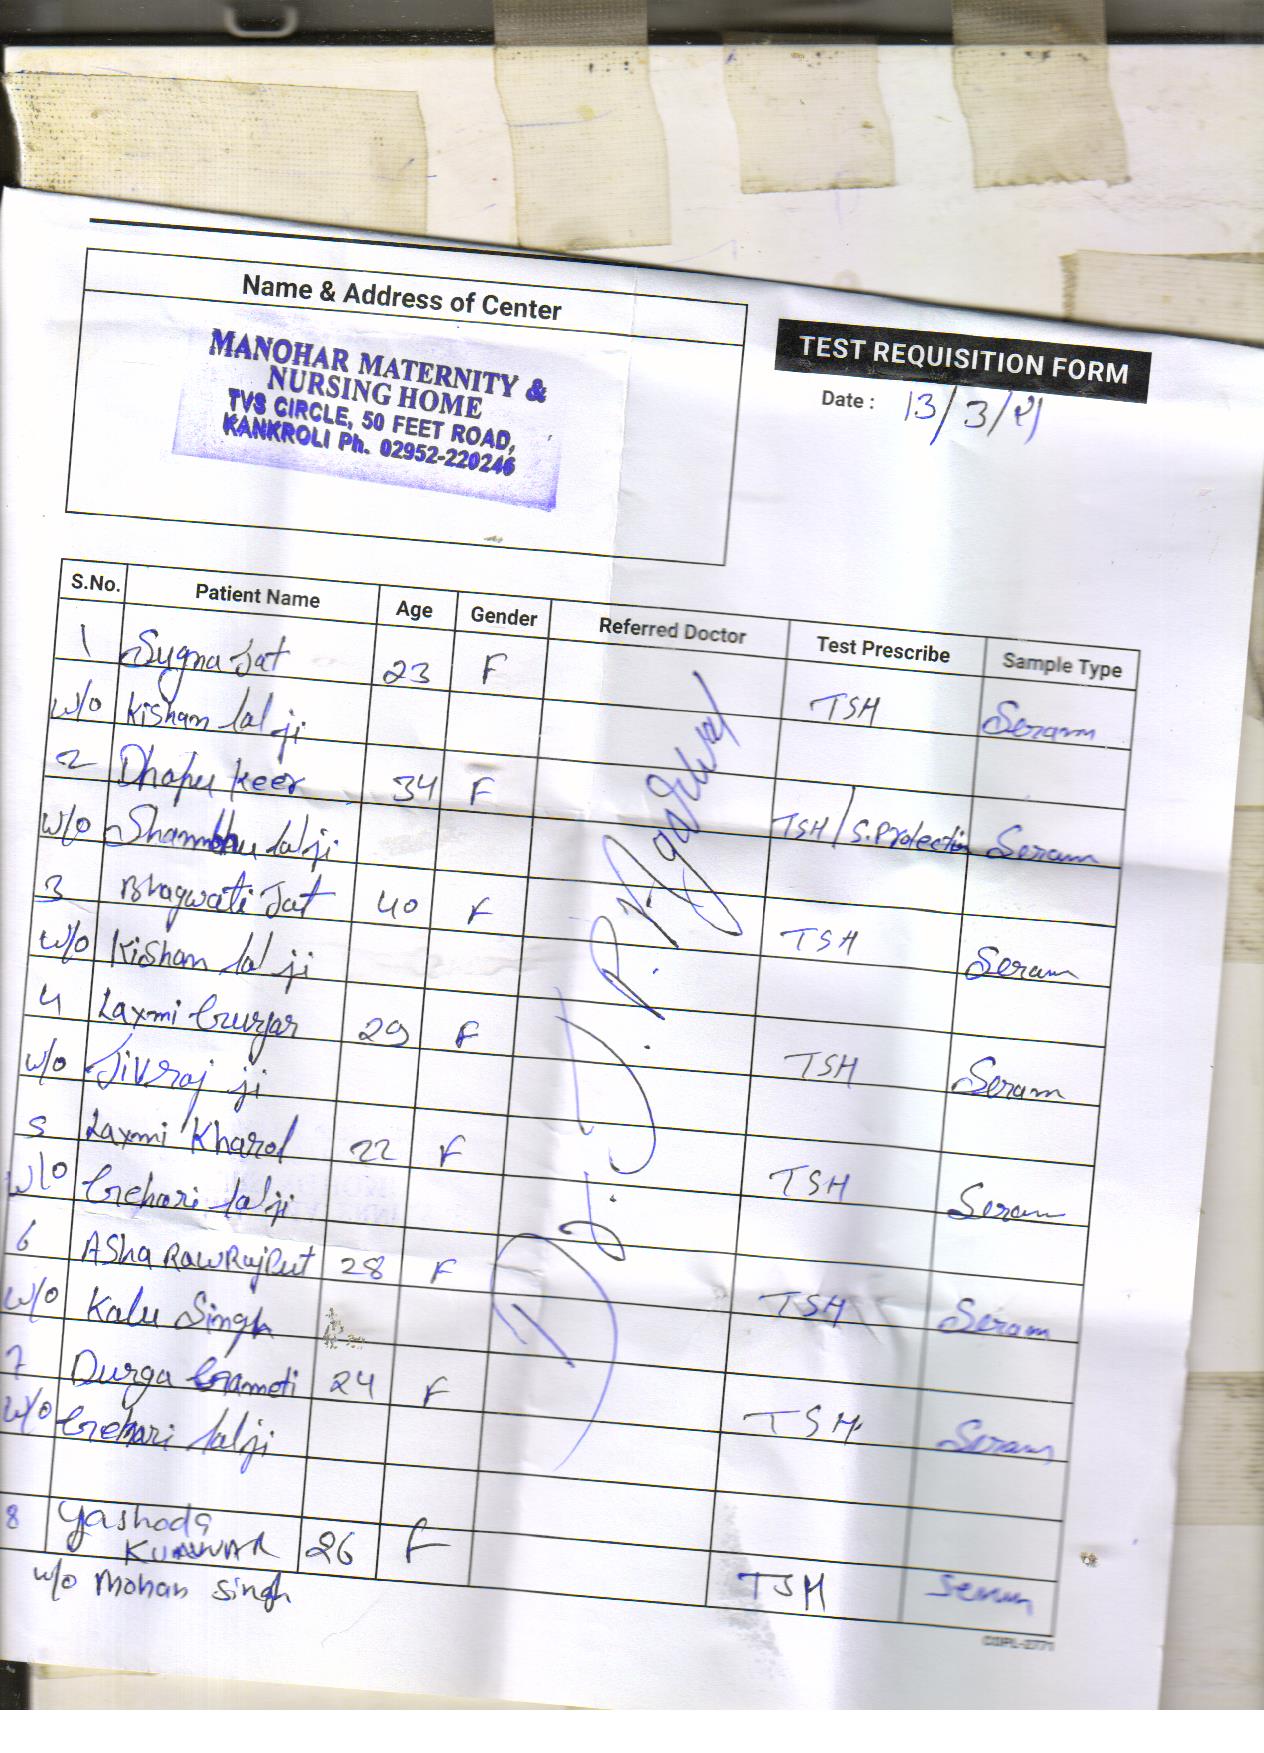 Name & Address of Center
MANOHAR MATERNITY &
NURSING HOME
TVS CIRCLE, 50 FEET ROAD,
KANKROLI Ph. 02952-220246
TEST REQUISITION FORM
Date : 13/3/21
S.No. Patient Name Age Gender Referred Doctor Test Prescribe Sample Type
1 Sugna Jat 23 F TSH Seram
w/o Kishan lal ji
2 Dhapu keer 34 F TSH/S.Prolectin Seram
w/o Shambhu lal ji
3 Bhagwati Jat 40 F TSH Seram
w/o Kishan lal ji
4 Laxmi Gurjar 29 F TSH Seram
w/o Jivraj ji
5 Laxmi Kharol 22 F TSH Seram
w/o Gehari lal ji
6 Asha RawRajput 28 F TSH Seram
w/o Kalu Singh
7 Durga Gameti 24 F TSH Seram
w/o Gehari lal ji
8 Yashoda
KUNWAR 26 F TSH Serum
w/o Mohan Singh
Dr. J. P. Agarwal